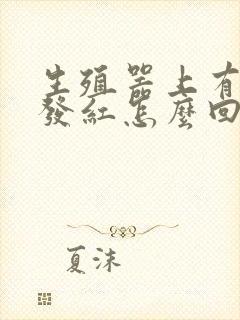 生殖器上有
發紅怎麼回
夏沫